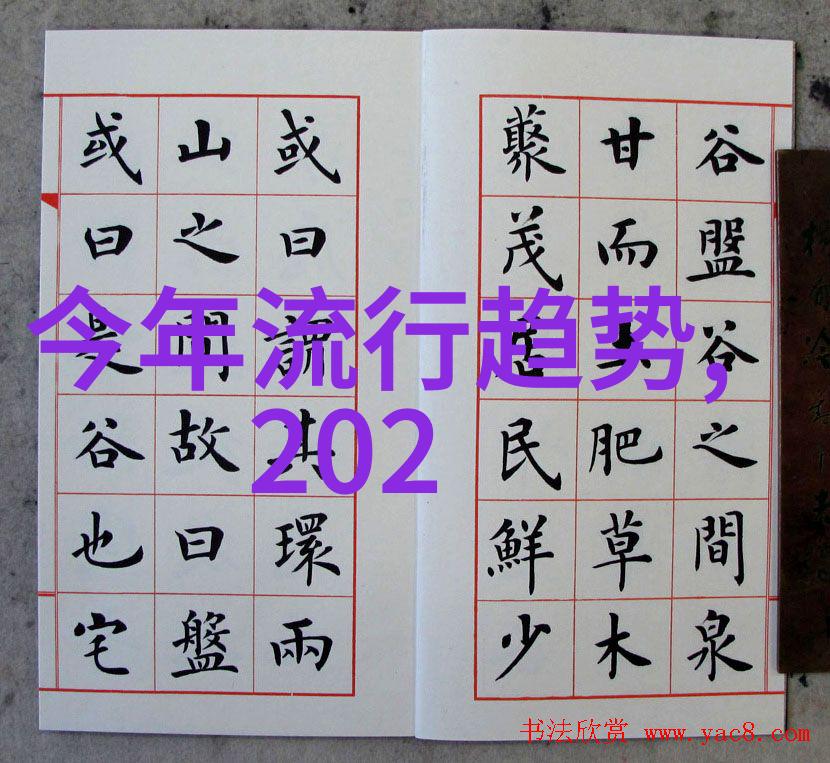 谷盤谷之間泉
甘而土肥草木
藂茂居民鮮少
或曰謂其環兩
山之間故曰盤
或曰是谷也宅
今年流行趋势,
202
书法欣赏 www.yac8.com